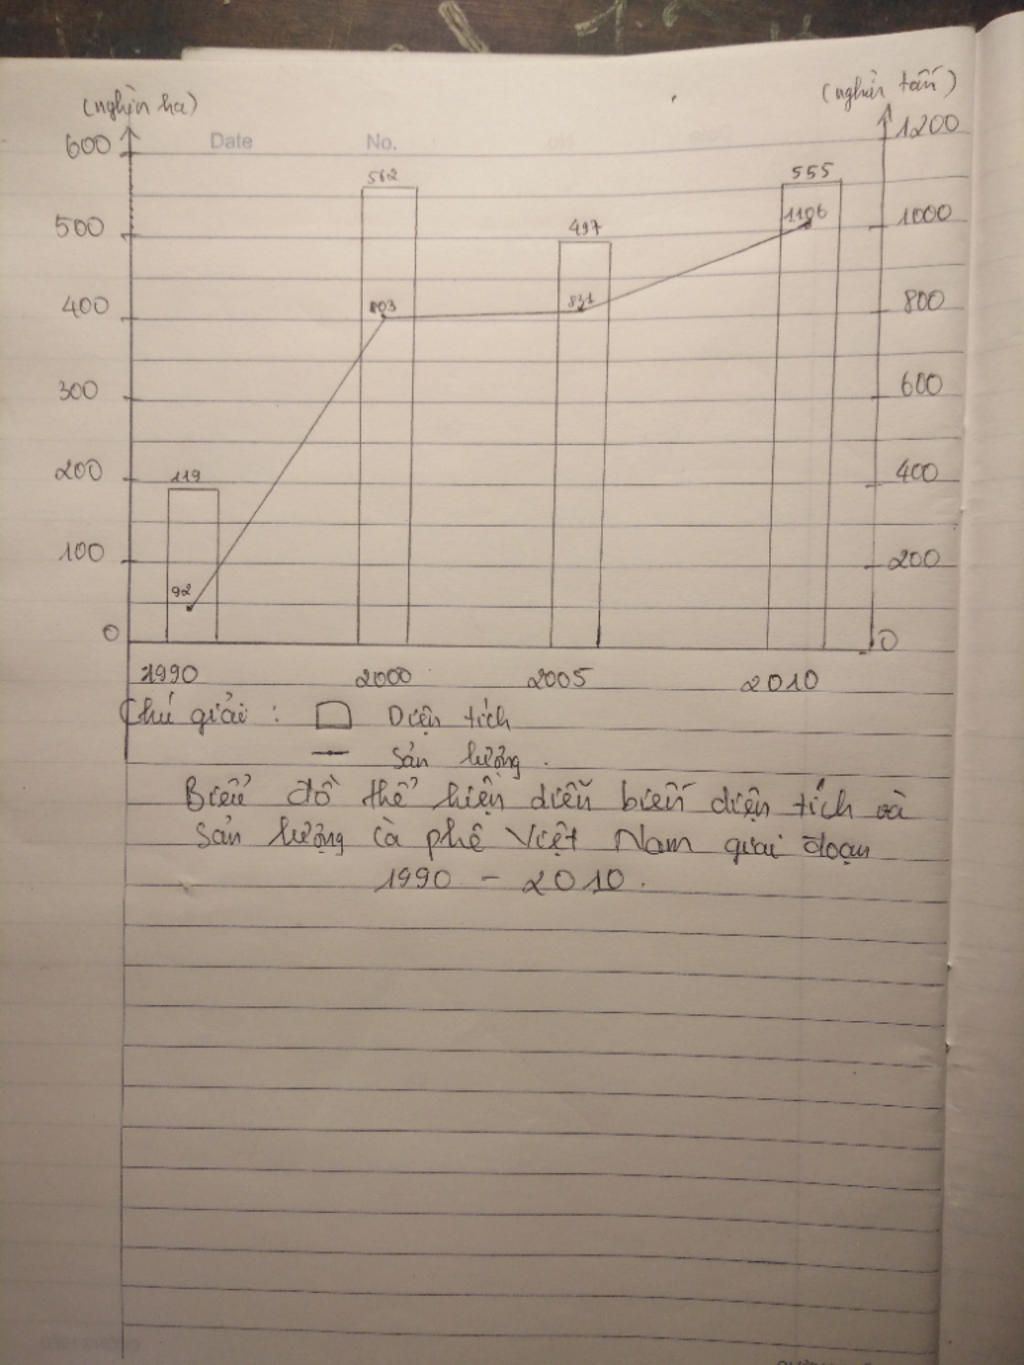 (nghìn ha)
(nghìn tấn)
600
Date
No.
1200
562
555
500
497
1106
1000
400
803
831
800
300
600
200
119
400
100
92
200
0
0
1990
2000
2005
2010
Chú giải : Diện tích
Sản lượng.
Biểu đồ thể hiện diễn biến diện tích và
sản lượng cà phê Việt Nam giai đoạn
1990 - 2010.